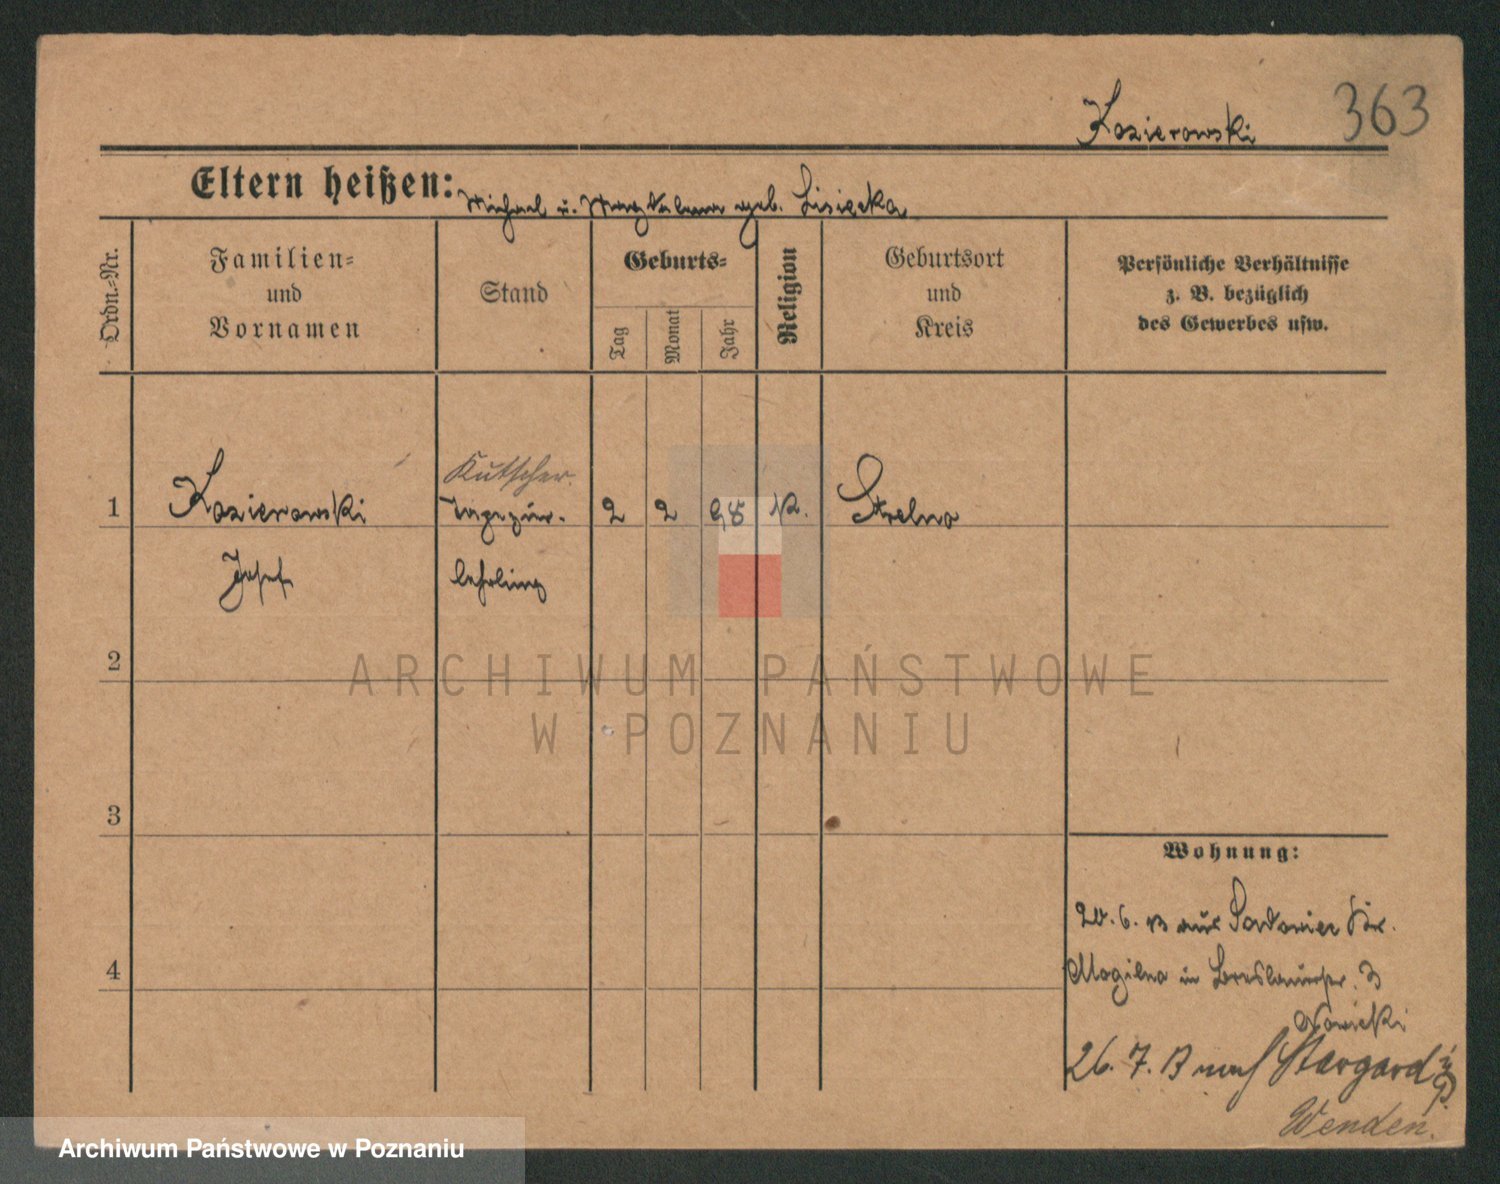 Kozierowski 363
Eltern heißen: Michael u. Magdalena geb. Lisiecka
Ordn.-Nr.
Familien-
und
Vornamen
Stand
Geburts-
Tag
Monat
Jahr
Religion
Geburtsort
und
Kreis
Persönliche Verhältnisse
z. B. bezüglich
des Gewerbes usw.
Kutscher.
1 Kozierowski 2 2 98 k. Strelno
Josef lehrling
2
ARCHIWUM PAŃSTWOWE
W POZNANIU
3
Wohnung:
20. 6. 13 aus Kr.
4
Mogilno in Breslauerstr. 3
Nowicki
26. 7. 13 nach Stargard i/P.
Wenden.
Archiwum Państwowe w Poznaniu